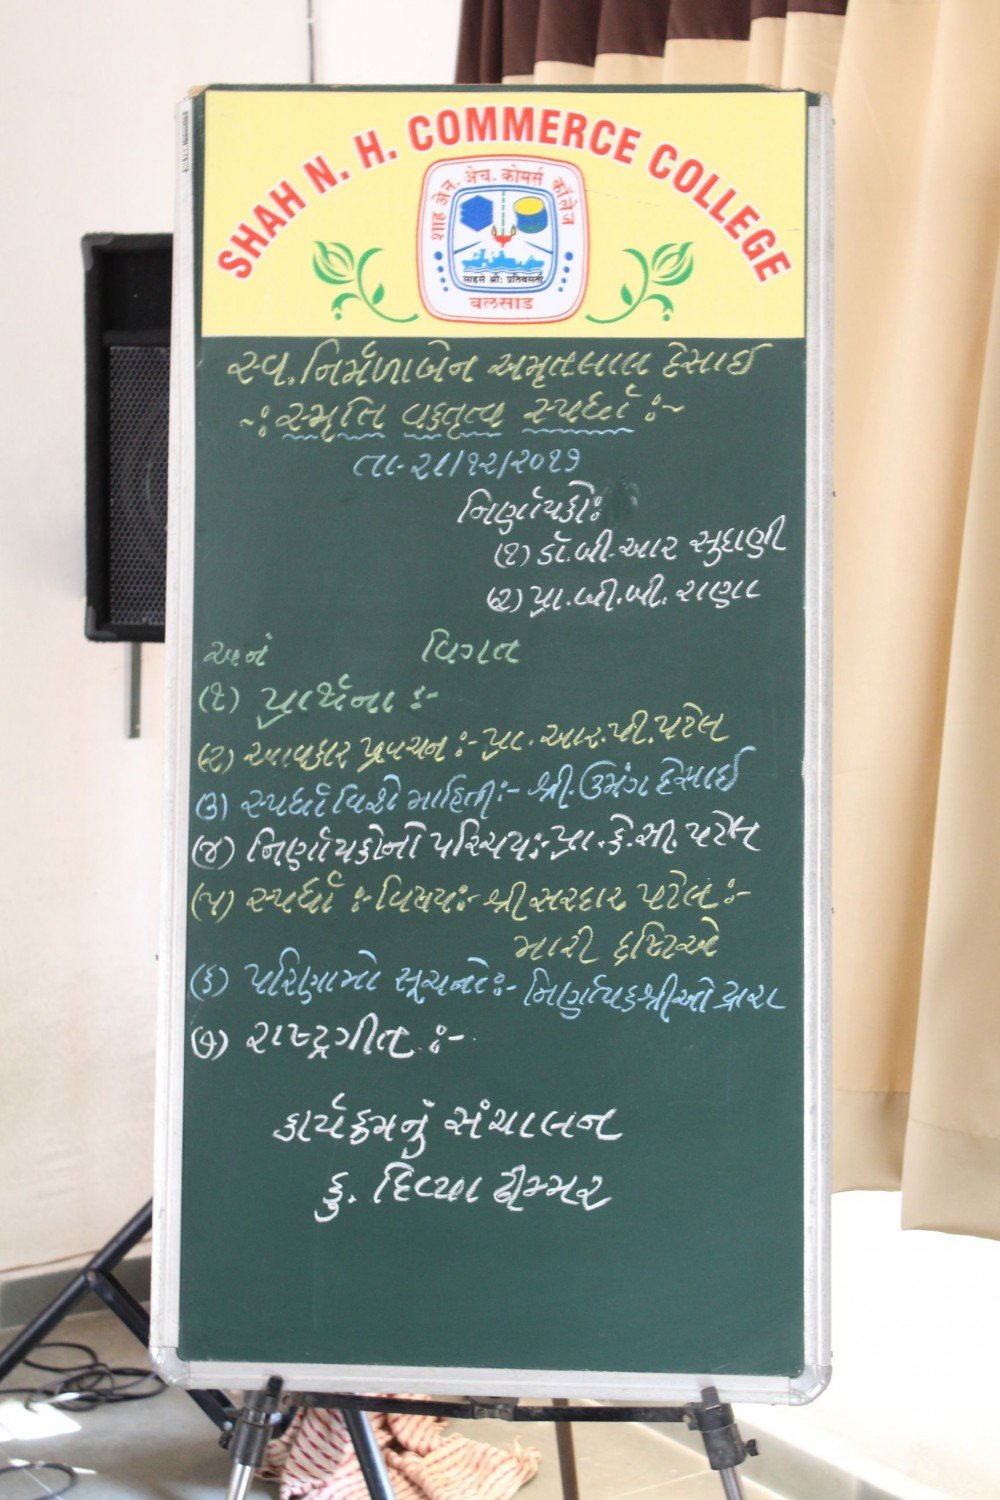 SHAH N. H. COMMERCE COLLEGE
शाह अेन. अेच. कोमर्स कॉलेज
साहसे श्रीः प्रतिवसती
वलसाड
સ્વ. નિર્મળાબેન અમૃતલાલ દેસાઈ
-: સ્મૃતિ વક્તૃત્વ સ્પર્ધા :-
તા-૨૧/૧૨/૨૦૧૭
નિર્ણાયકો:
(૧) ડૉ. બી. આર સુદાણી
(૨) પ્રા. બી. બી. રાણા
અ.નં વિગત
(૧) પ્રાર્થના :-
(૨) આવકાર પ્રવચન :- પ્રા. આર. પી. પટેલ
(૩) સ્પર્ધા વિશે માહિતી :- શ્રી. ઉમંગ દેસાઈ
(૪) નિર્ણાયકોનો પરિચય :- પ્રા. કે. સી. પટેલ
(૫) સ્પર્ધા :- વિષય :- શ્રી સરદાર પટેલ :-
મારી દ્રષ્ટિએ
(૬) પરિણામો સૂચનો :- નિર્ણાયકશ્રીઓ દ્વારા
(૭) રાષ્ટ્રગીત :-
કાર્યક્રમનું સંચાલન
કુ. દિવ્યા ઢીમ્મર